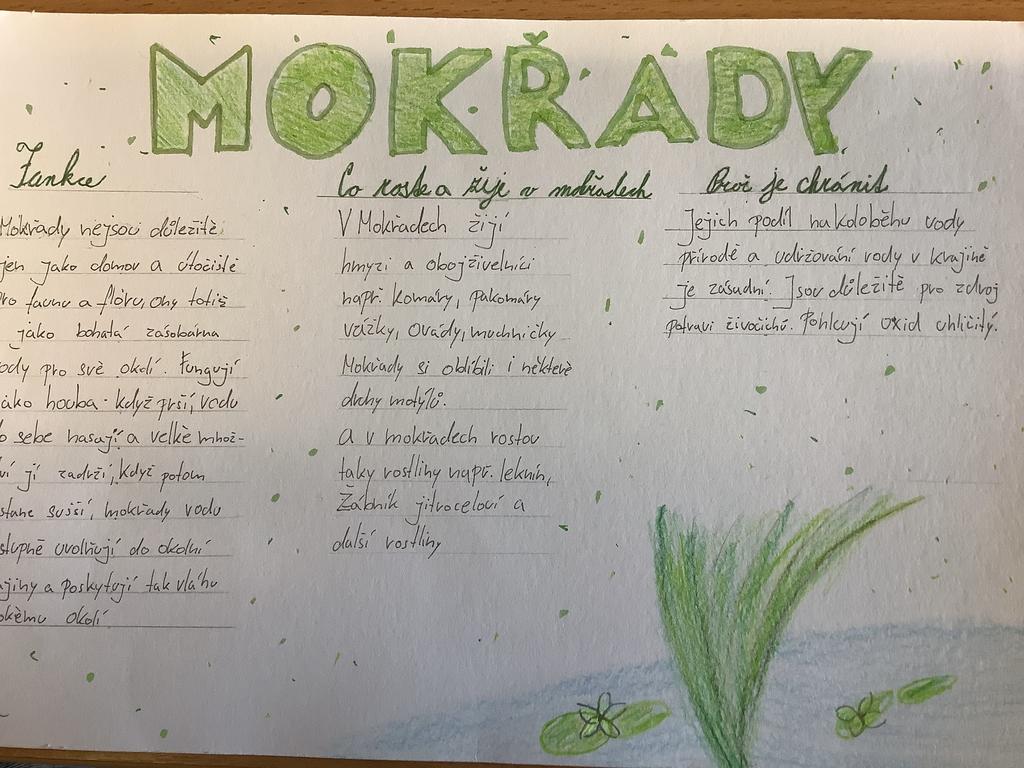 MOKŘADY
Funkce
Mokřady nejsou důležité
jen jako domov a útočiště
pro faunu a flóru, ony totiž
jako bohatá zásobárna
ody pro své okolí. Fungují
jako houba. když prší, vodu
o sebe nasají a velké množ-
ví jí zadrží, když potom
stane sušší, mokřady vodu
stupně uvolňují do okolní
ajiny a poskytují tak vláhu
okému okolí
Co roste a žije v mokřadech
V Mokřadech žijí
hmyzi a obojživelníci
např. komáry, pakomáry
vážky, Ovády, muchničky
Mokřady si oblíbili i některé
druhy motýlů.
a v mokřadech rostou
taky rostliny např. leknín,
Žábník jitrocelový a
další rostliny
Proč je chránit
Jejich podíl na koloběhu vody
přírodě a udržování vody v krajině
je zásadní. Jsou důležité pro zdroj
potravi živočichů. Pohlcují oxid uhličitý.